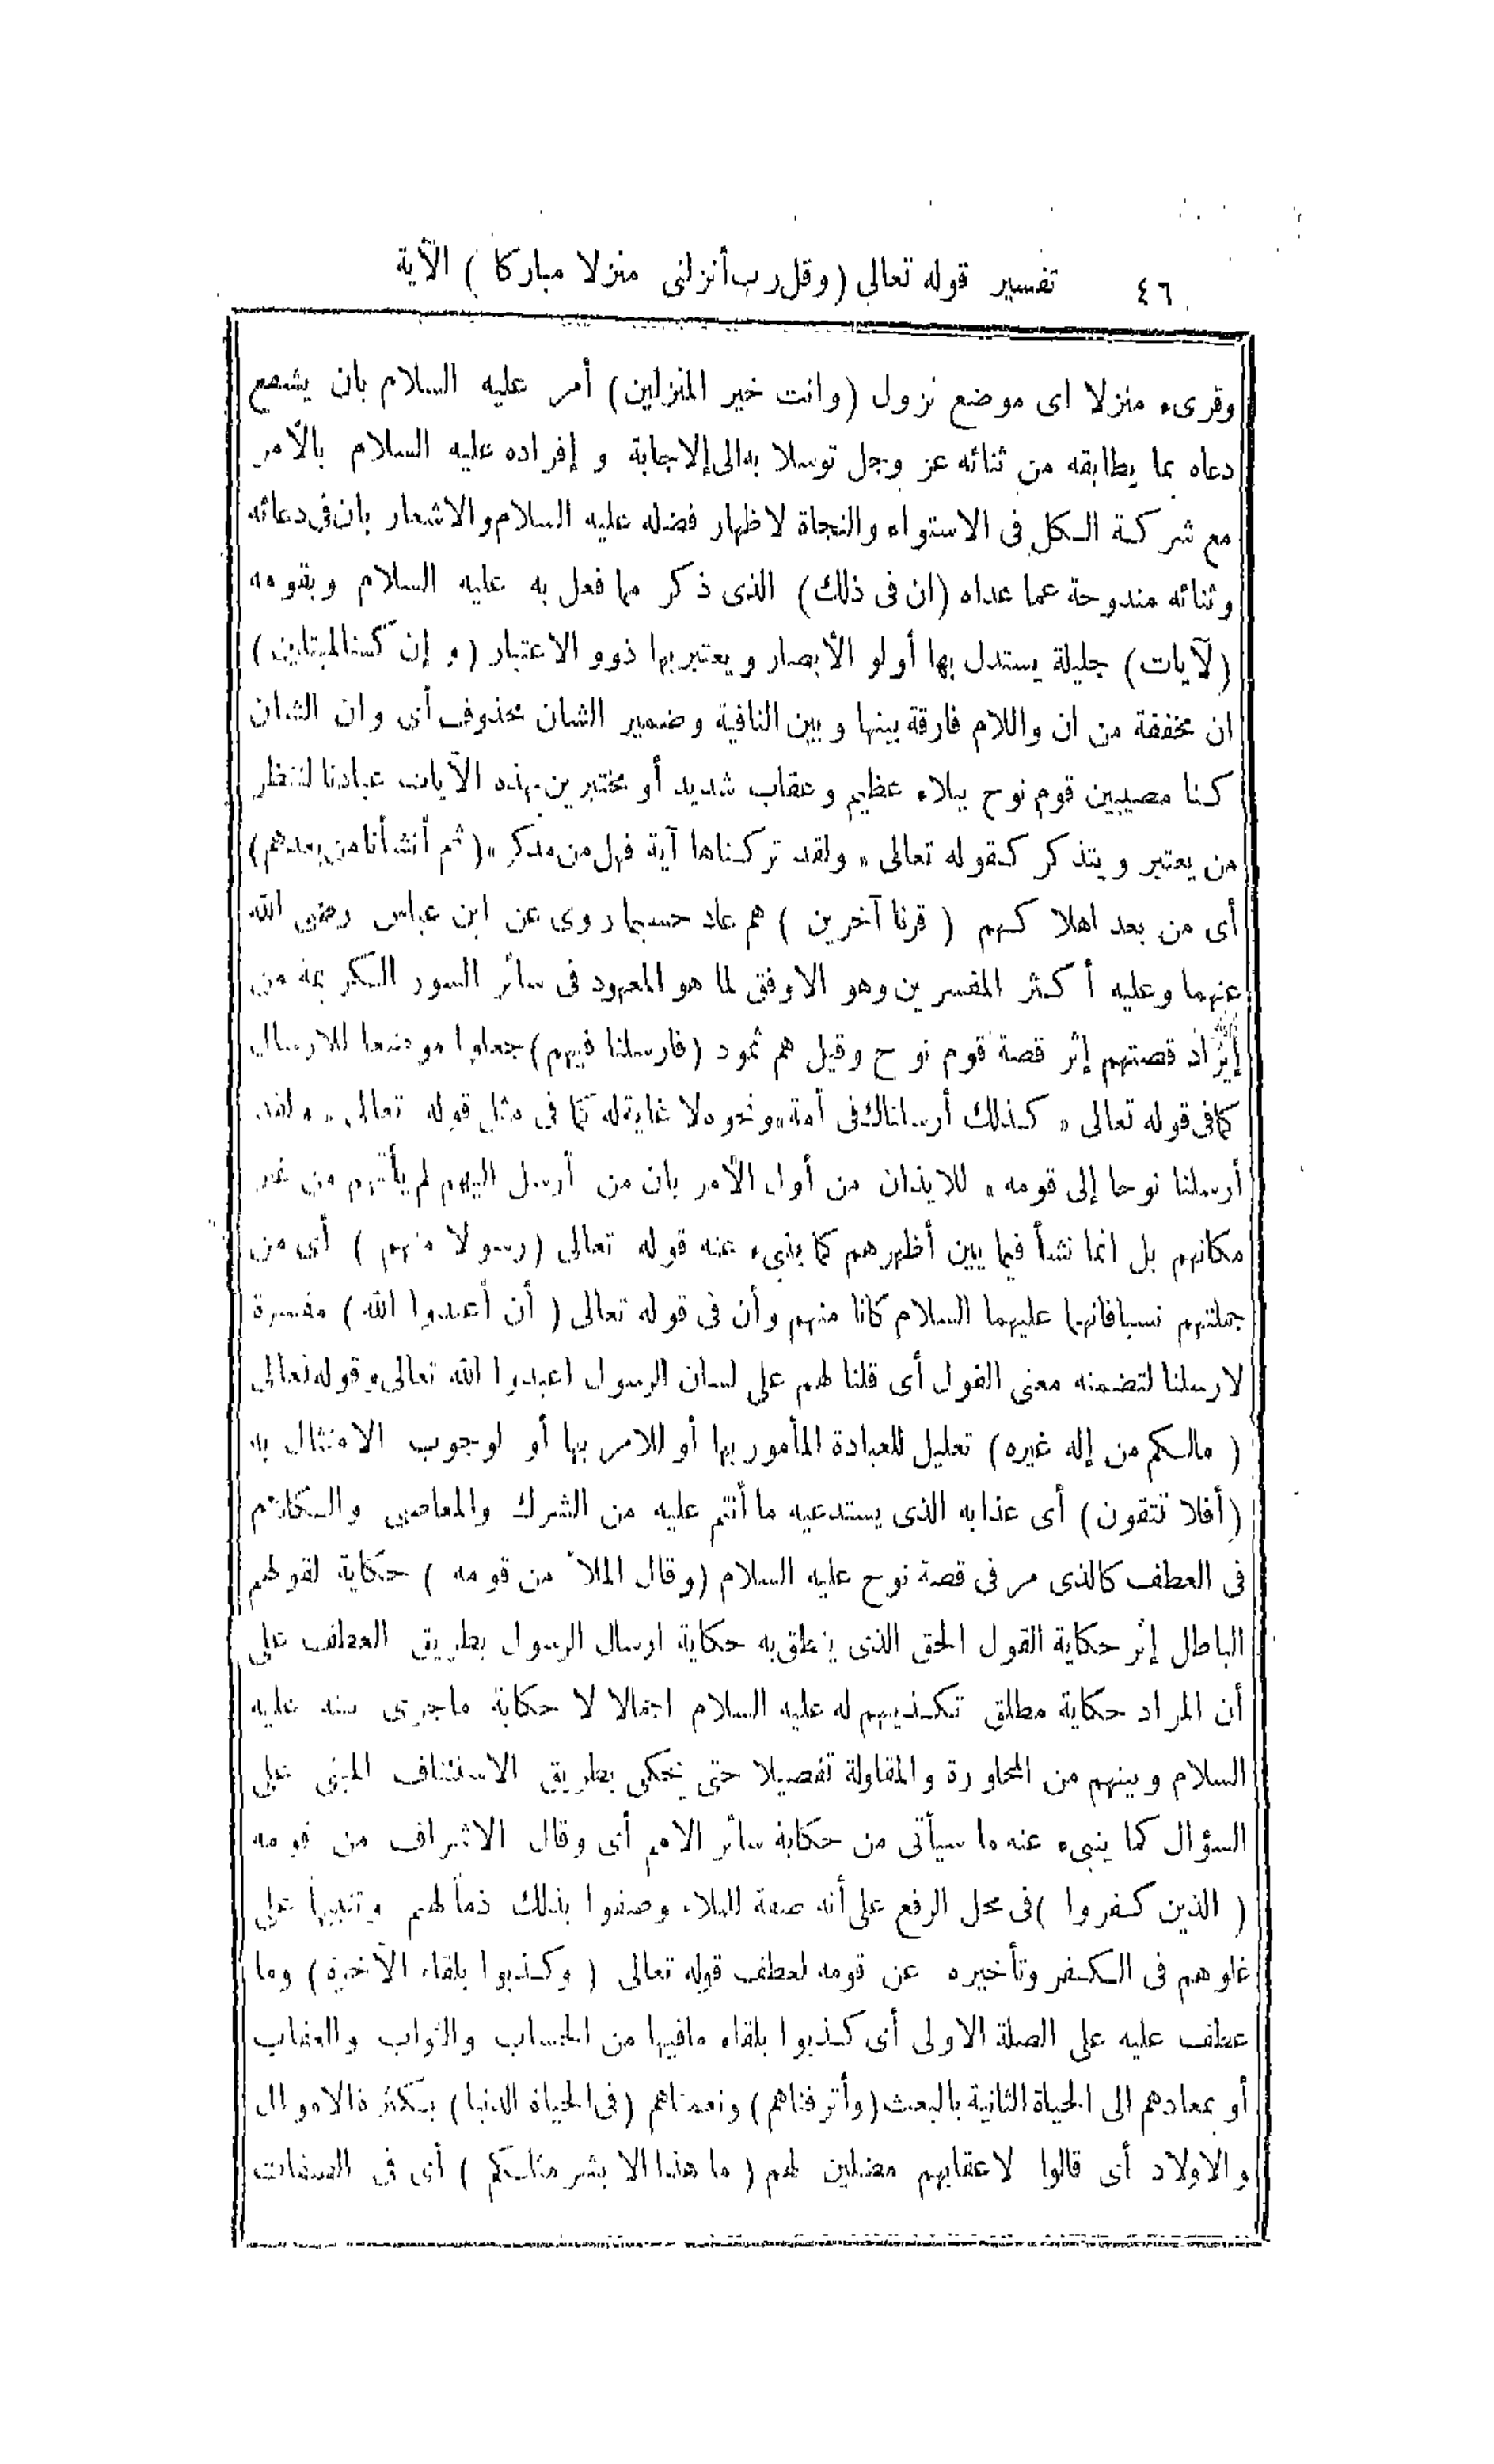 ٤٦ تفسير قوله تعالى (وقل رب أنزلنى منزلا مباركا) الآية
وقرىء منزلا اى موضع نزول (وانت خير المنزلين) أمر عليه السلام بان يشفع
دعاه بما يطابقه من ثنائه عز وجل توسلا به الى الاجابة و إفراده عليه السلام بالأمر
مع شركة الكل فى الاستواء والنجاة لاظهار فضله عليه السلام والاشعار بان فى دعائه
وثنائه مندوحة عما عداه (ان فى ذلك) الذى ذكر مما فعل به عليه السلام وبقومه
(لآيات) جليلة يستدل بها أولو الأبصار ويعتبر بها ذوو الاعتبار (و إن كنا لمبتلين)
ان مخففة من ان واللام فارقة بينها وبين النافية وضمير الشان محذوف أى وان الشان
كنا مصيبين قوم نوح ببلاء عظيم وعقاب شديد أو مختبرين بهذه الآيات عبادنا لننظر
من يعتبر ويتذكر كقوله تعالى «ولقد تركناها آية فهل من مدكر» (ثم أنشأنا من بعدهم)
أى من بعد اهلاكهم (قرنا آخرين) هم عاد حسبما روى عن ابن عباس رضى الله
عنهما وعليه أكثر المفسرين وهو الاوفق لما هو المعهود فى سائر السور الكريمة من
إيراد قصتهم إثر قصة قوم نوح وقيل هم ثمود (فارسلنا فيهم) جعلوا موضعا للارسال
كما فى قوله تعالى «كذلك أرسلناك فى أمة» ونحوه لا غاية له كما فى مثل قوله تعالى «ولقد
أرسلنا نوحا إلى قومه» للايذان من أول الأمر بان من أرسل اليهم لم يأتهم من غير
مكانهم بل انما نشأ فيما بين أظهرهم كما ينبىء عنه قوله تعالى (رسولا منهم) أى من
جملتهم نسبا فانهما عليهما السلام كانا منهم وأن فى قوله تعالى (أن أعبدوا الله) مفسرة
لارسلنا لتضمنه معنى القول أى قلنا لهم على لسان الرسول اعبدوا الله تعالى وقوله تعالى
(مالكم من إله غيره) تعليل للعبادة المأمور بها أو للامر بها أو لوجوب الامتثال به
(أفلا تتقون) أى عذابه الذى يستدعيه ما أنتم عليه من الشرك والمعاصى والكلام
فى العطف كالذى مر فى قصة نوح عليه السلام (وقال الملأ من قومه) حكاية لقولهم
الباطل إثر حكاية القول الحق الذى ينطق به حكاية ارسال الرسول بطريق العطف على
أن المراد حكاية مطلق تكذيبهم له عليه السلام اجمالا لا حكاية ماجرى بينه عليه
السلام وبينهم من المحاورة والمقاولة تفصيلا حتى يحكى بطريق الاستئناف المبنى على
السؤال كما ينبىء عنه ما سيأتى من حكاية سائر الامم أى وقال الاشراف من قومه
(الذين كفروا) فى محل الرفع على أنه صفة للملاء وصفوا بذلك ذماً لهم وتنبيها على
غلوهم فى الكفر وتأخيره عن قومه لعطف قوله تعالى (وكذبوا بلقاء الآخرة) وما
عطف عليه على الصلة الاولى أى كذبوا بلقاء مافيها من الحساب والثواب والعقاب
أو بمعادهم الى الحياة الثانية بالبعث (وأترفناهم) ونعمناهم (فى الحياة الدنيا) بكثرة الاموال
والاولاد أى قالوا لاعقابهم مضلين لهم (ما هذا الا بشر مثلكم) أى فى الصفات